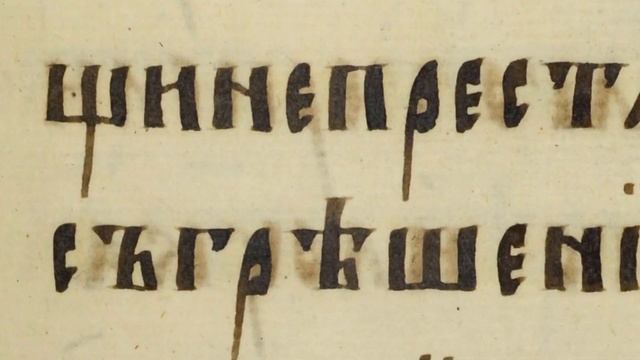 щинепрест
съгрѣшені